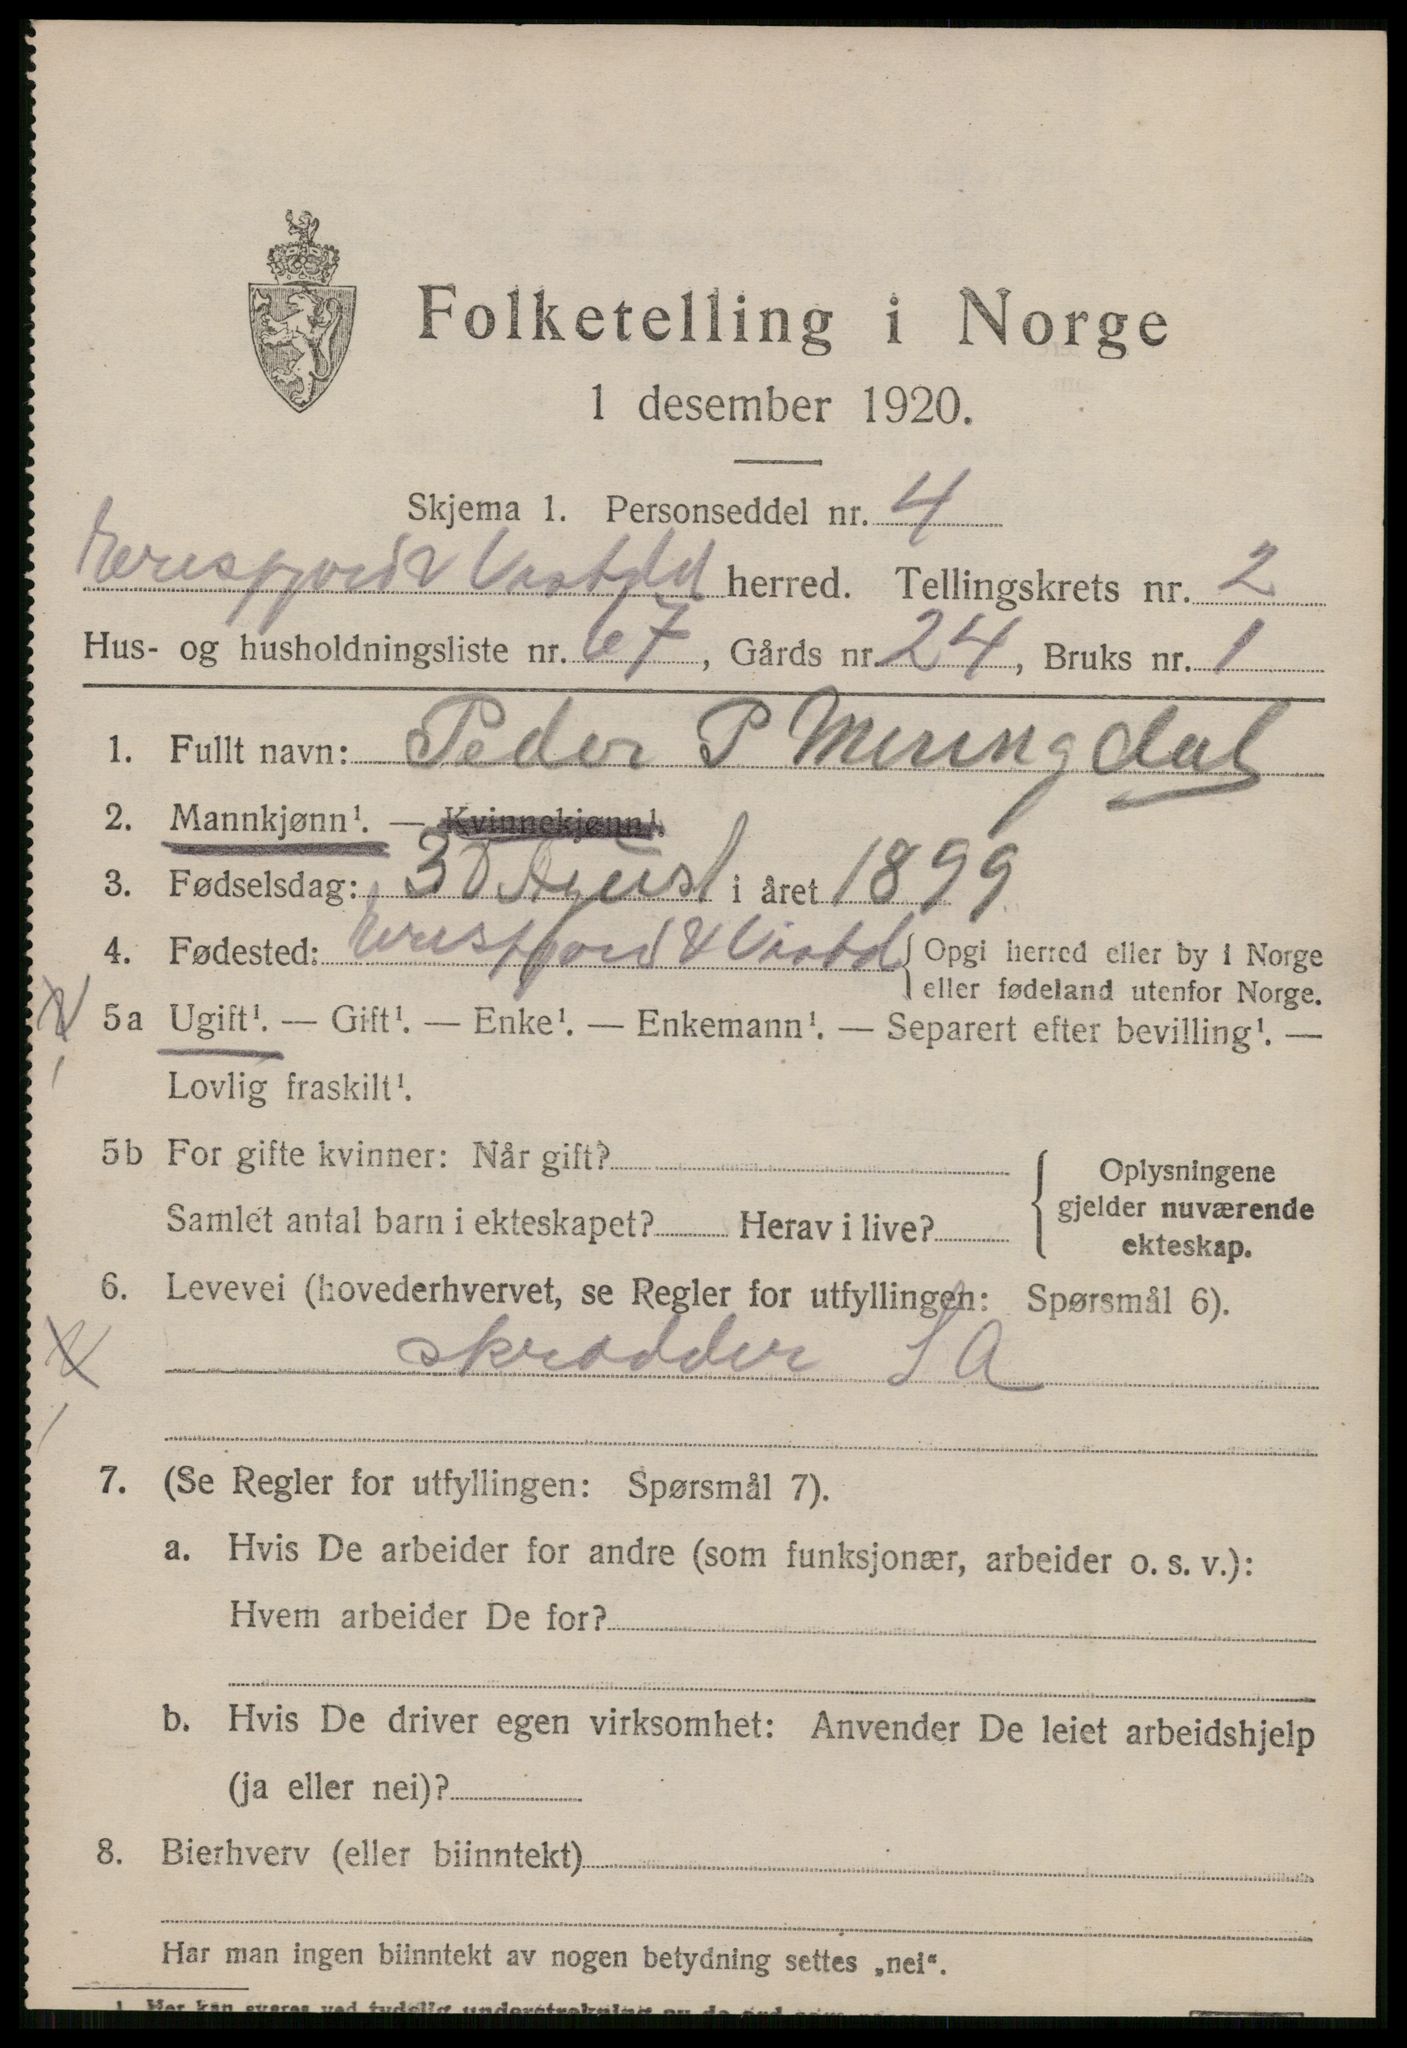 Folketelling i Norge
1 desember 1920.
Skjema 1. Personseddel nr. 4
Eresfjord & Vistdal herred. Tellingskrets nr. 2
Hus- og husholdningsliste nr. 67, Gårds nr. 24, Bruks nr. 1
1. Fullt navn: Peder P Meringdal
2. Mannkjønn¹. — Kvinnekjønn¹.
3. Fødselsdag: 30 August i året 1899
4. Fødested: Eresfjord & Vistd { Opgi herred eller by i Norge
eller fødeland utenfor Norge.
5a Ugift¹. — Gift¹. — Enke¹. — Enkemann¹. — Separert efter bevilling¹. —
Lovlig fraskilt¹.
5b For gifte kvinner: Når gift?
Samlet antal barn i ekteskapet? Herav i live?
{ Oplysningene
gjelder nuværende
ekteskap.
6. Levevei (hovederhvervet, se Regler for utfyllingen: Spørsmål 6).
skrædder S A
7. (Se Regler for utfyllingen: Spørsmål 7).
a. Hvis De arbeider for andre (som funksjonær, arbeider o. s. v.):
Hvem arbeider De for?
b. Hvis De driver egen virksomhet: Anvender De leiet arbeidshjelp
(ja eller nei)?
8. Bierhverv (eller biinntekt)
Har man ingen biinntekt av nogen betydning settes „nei“.